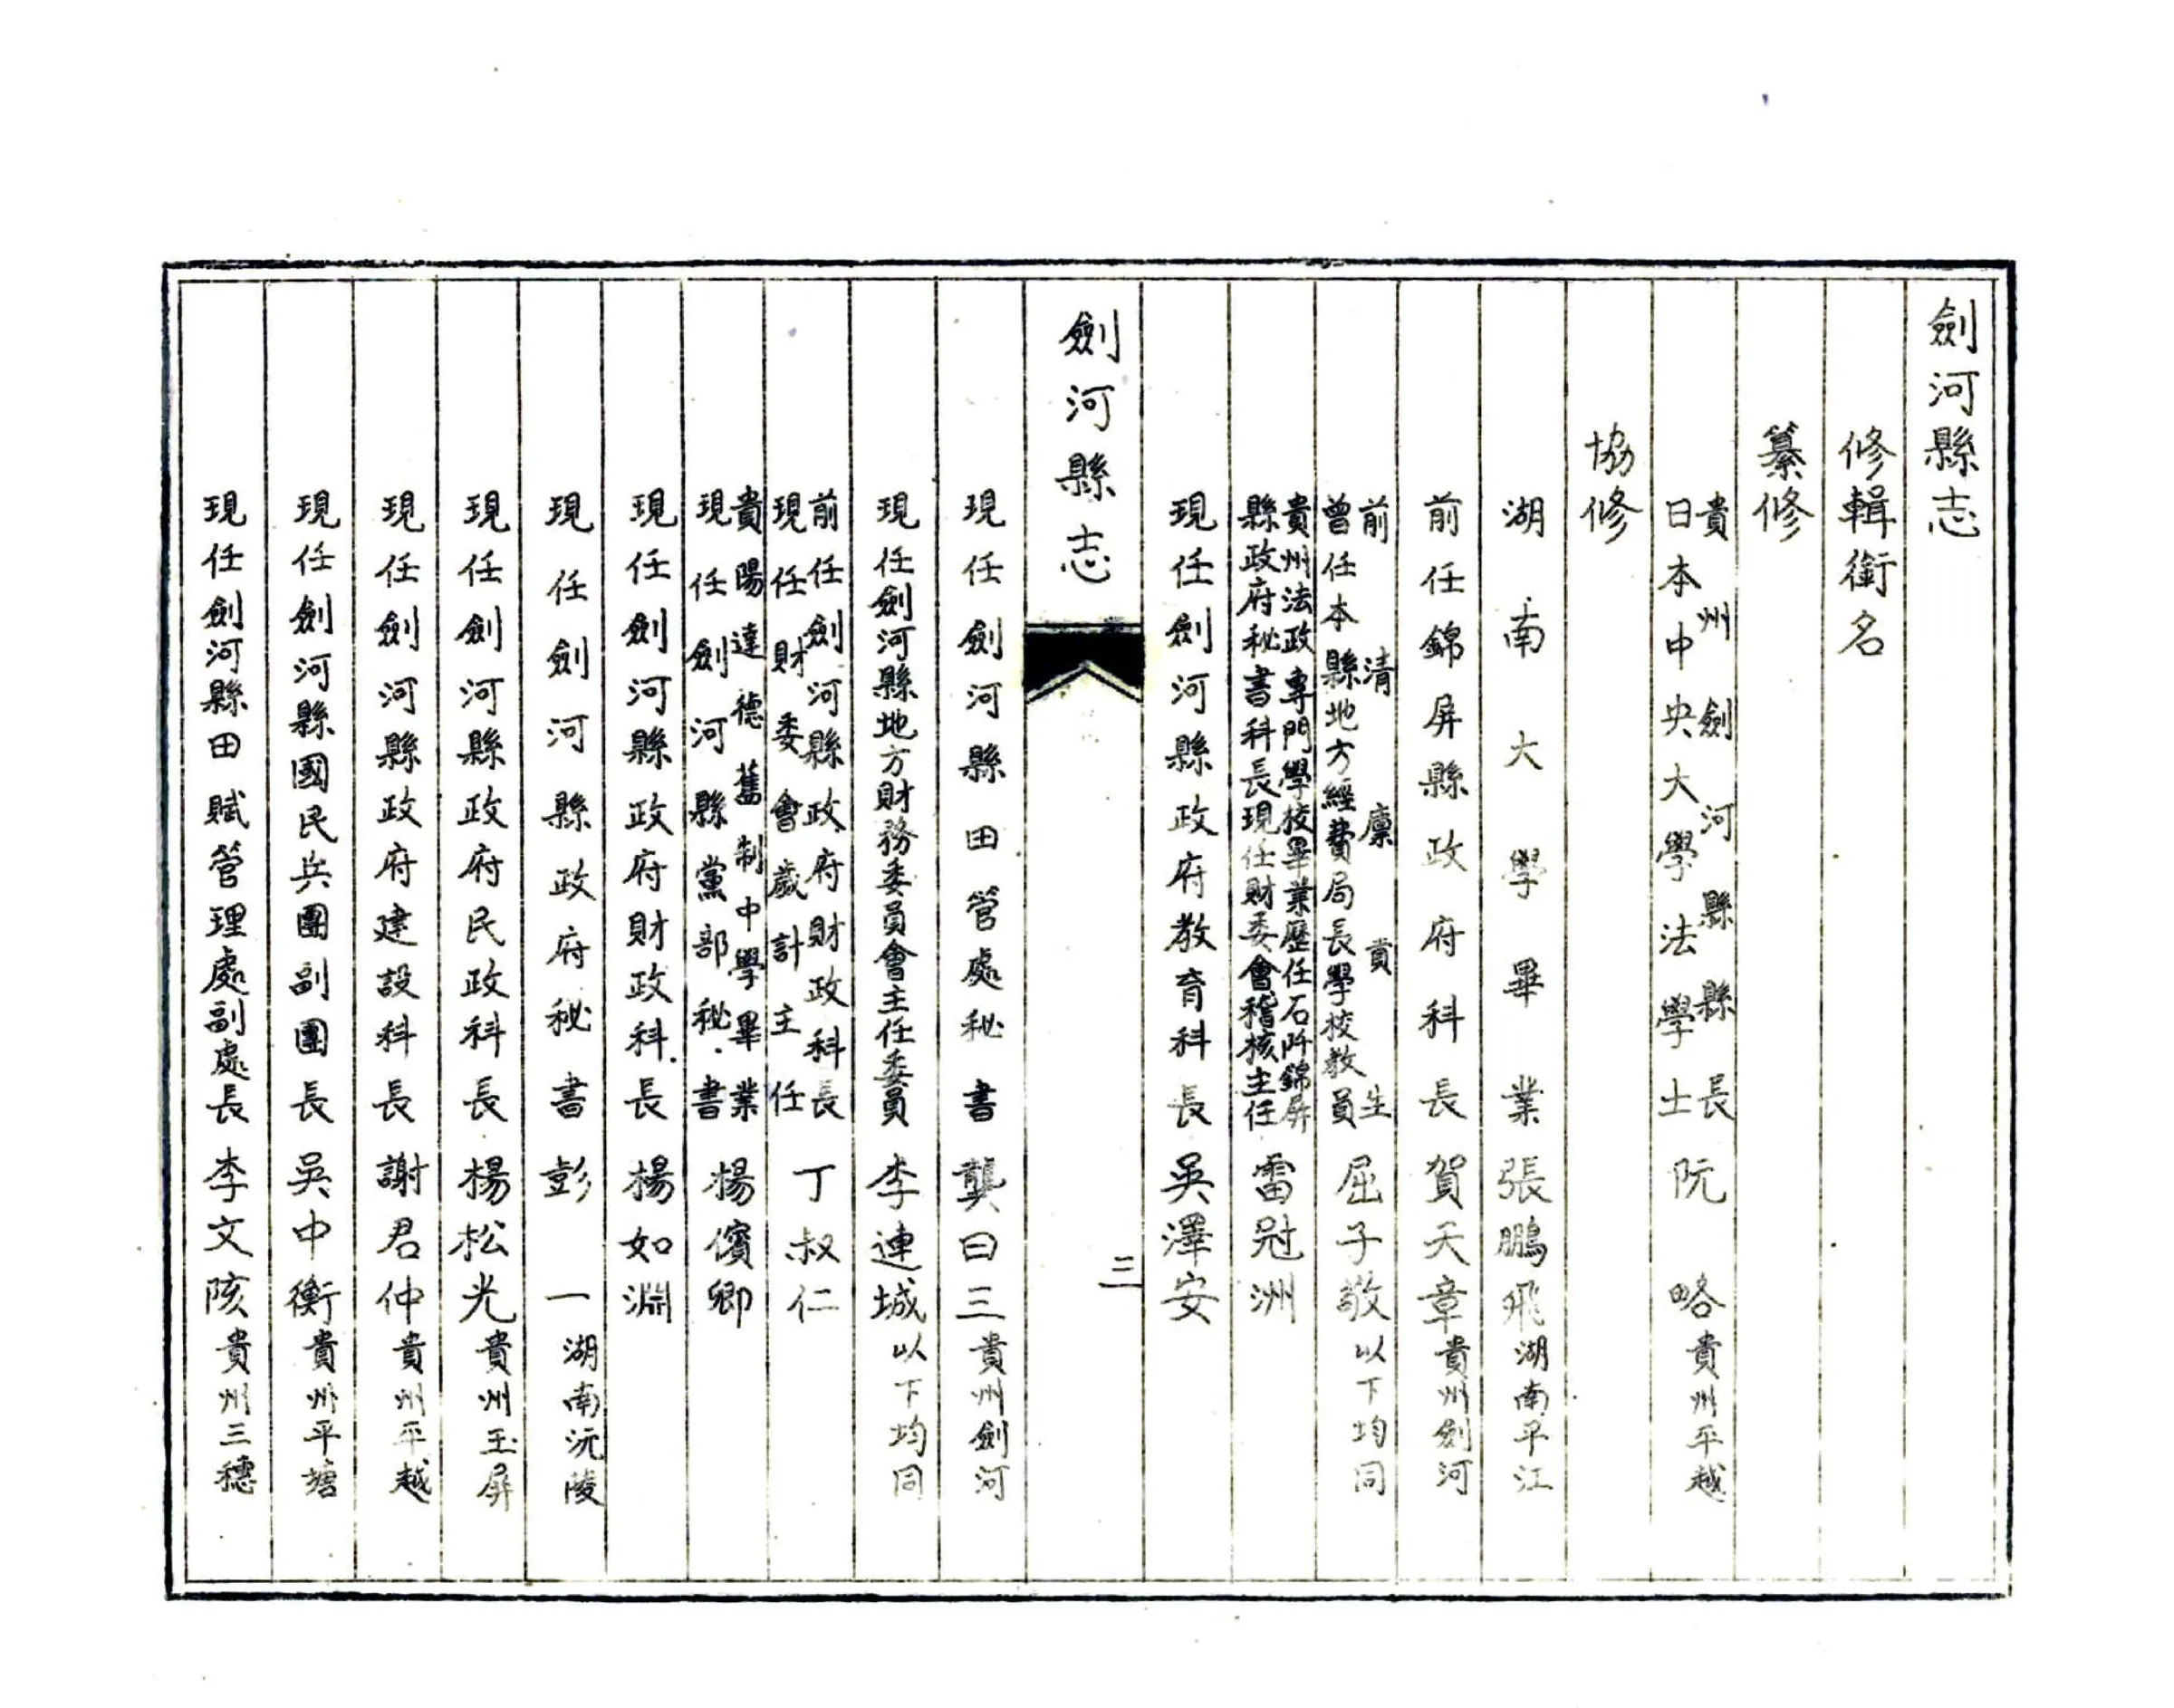 劍河縣志
修輯銜名
纂修
貴州劍河縣縣長
日本中央大學法學士
阮略貴州平越
協修
湖南大學畢業張鵬飛湖南平江
前任錦屏縣政府科長賀天章貴州劍河
前清廩貢生
曾任本縣地方經費局長學校教員
屈子敬以下均同
貴州法政專門學校畢業歷任石阡錦屏
縣政府秘書科長現任財委會稽核主任
雷冠洲
現任劍河縣政府教育科長吳澤安
劍河縣志
三
現任劍河縣田管處秘書龔曰三貴州劍河
現任劍河縣地方財務委員會主任委員李連城以下均同
前任劍河縣政府財政科長
現任財委會歲計主任
丁叔仁
貴陽達德舊制中學畢業
現任劍河縣黨部秘書
楊儐卿
現任劍河縣政府財政科長楊如淵
現任劍河縣政府秘書彭一湖南沅陵
現任劍河縣政府民政科長楊松光貴州玉屏
現任劍河縣政府建設科長謝君仲貴州平越
現任劍河縣國民兵團副團長吳中衡貴州平塘
現任劍河縣田賦管理處副處長李文陔貴州三穗